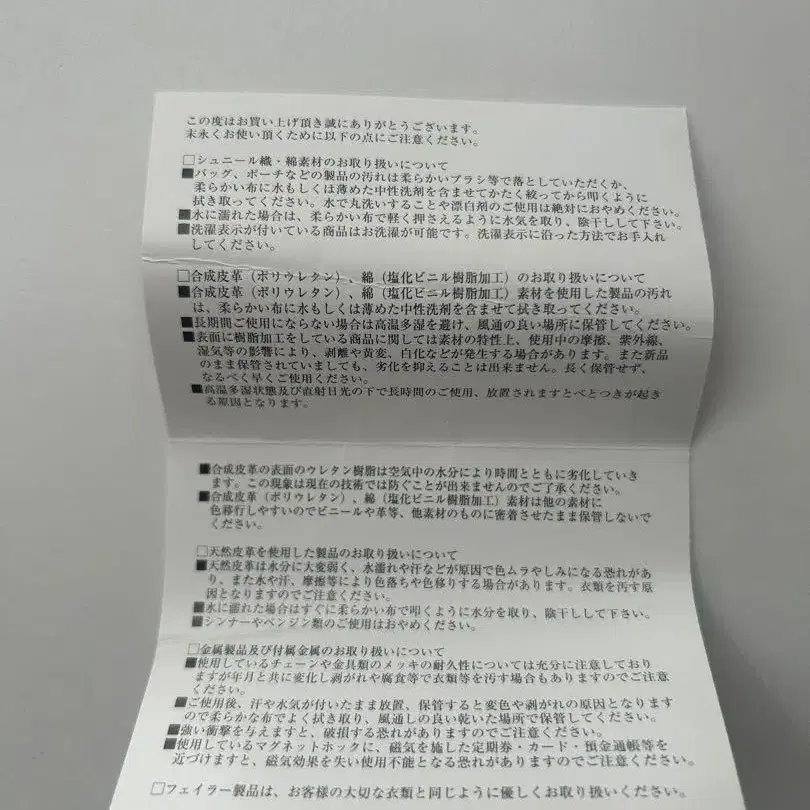 この度はお買い上げ頂き誠にありがとうございます。
末永くお使い頂くために以下の点にご注意ください。
□シュニール織・綿素材のお取り扱いについて
■バッグ、ポーチなどの製品の汚れは柔らかいブラシ等で落としていただくか、
柔らかい布に水もしくは薄めた中性洗剤を含ませてかたく絞ってから叩くように
拭き取ってください。水で丸洗いすることや漂白剤のご使用は絶対におやめください。
■水に濡れた場合は、柔らかい布で軽く押さえるように水気を取り、陰干しして下さい。
■洗濯表示が付いている商品はお洗濯が可能です。洗濯表示に沿った方法でお手入れ
してください。
□合成皮革（ポリウレタン）、綿（塩化ビニル樹脂加工）のお取り扱いについて
■合成皮革（ポリウレタン）、綿（塩化ビニル樹脂加工）素材を使用した製品の汚れ
は、柔らかい布に水もしくは薄めた中性洗剤を含ませて拭き取ってください。
■長期間ご使用にならない場合は高温多湿を避け、風通の良い場所に保管してください。
■表面に樹脂加工をしている商品に関しては素材の特性上、使用中の摩擦、紫外線、
湿気等の影響により、剥離や黄変、白化などが発生する場合があります。また新品
のまま保管されていましても、劣化を抑えることは出来ません。長く保管せず、
なるべく早くご使用ください。
■高温多湿状態及び直射日光の下で長時間のご使用、放置されますとべとつきが起き
る原因となります。
■合成皮革の表面のウレタン樹脂は空気中の水分により時間とともに劣化していき
ます。この現象は現在の技術では防ぐことが出来ませんのでご了承ください。
■合成皮革（ポリウレタン）、綿（塩化ビニル樹脂加工）素材は他の素材に
色移行しやすいのでビニールや革等、他素材のものに密着させたまま保管しないで
ください。
□天然皮革を使用した製品のお取り扱いについて
■天然皮革は水分に大変弱く、水濡れや汗などが原因で色ムラやしみになる恐れがあ
り、また水や汗、摩擦等により色落ちや色移りする場合があります。衣類を汚す原
因となりますのでご注意ください。
■水に濡れた場合はすぐに柔らかい布で叩くように水分を取り、陰干しして下さい。
■シンナーやベンジン類のご使用はおやめください。
□金属製品及び付属金属のお取り扱いについて
■使用しているチェーンや金具類のメッキの耐久性については充分に注意しており
ますが年月と共に変化し剥がれや腐食等で衣類等を汚す場合もありますのでご注意
ください。
■ご使用後、汗や水気が付いたまま放置、保管すると変色や剥がれの原因となります
ので柔らかな布でよく拭き取り、風通しの良い乾いた場所で保管してください。
■強い衝撃を与えますと、破損する恐れがありますのでご注意ください。
■使用しているマグネットホックに、磁気を施した定期券・カード・預金通帳等を
近づけますと、磁気効果を失い使用不能となる恐れがありますのでご注意ください。
□フェイラー製品は、お客様の大切な衣類と同じように優しくお取り扱いください。